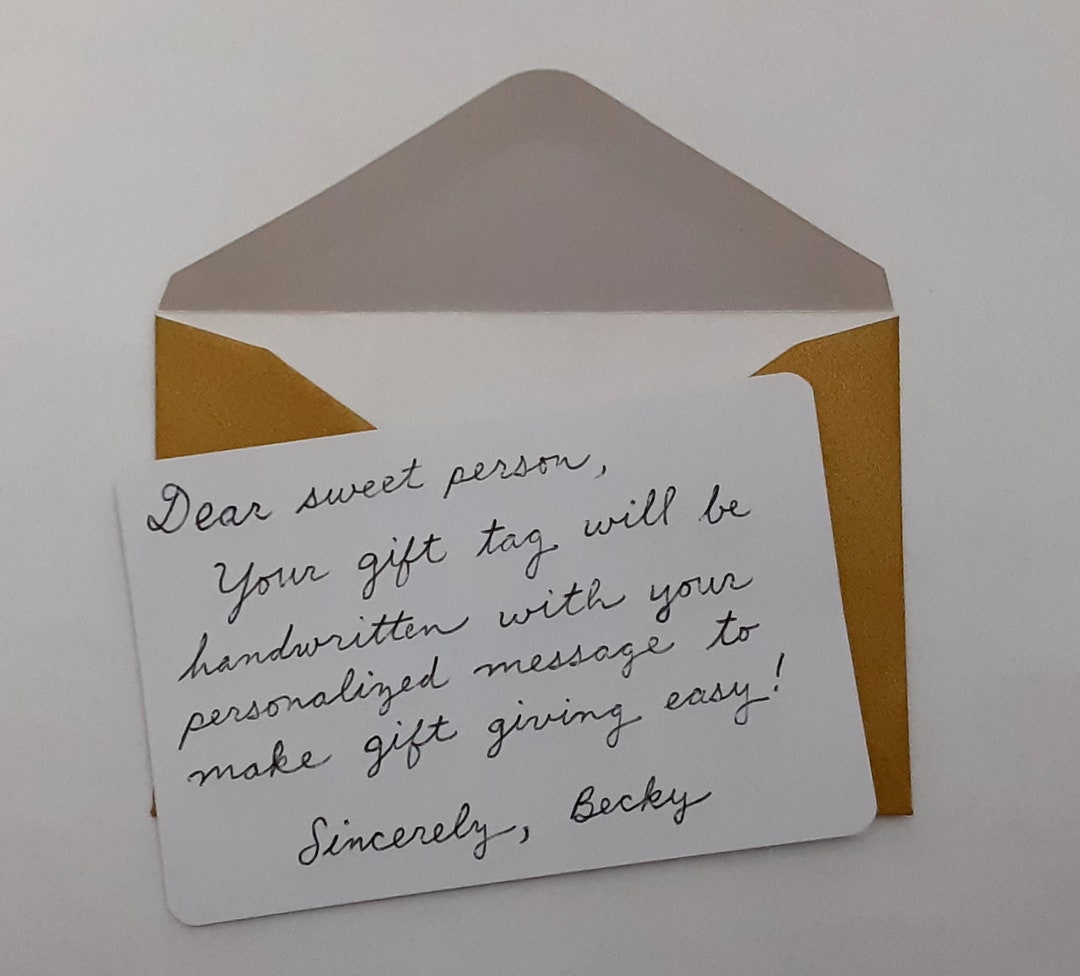 Dear sweet person,
Your gift tag will be
handwritten with your
personalized message to
make gift giving easy!
Sincerely, Becky